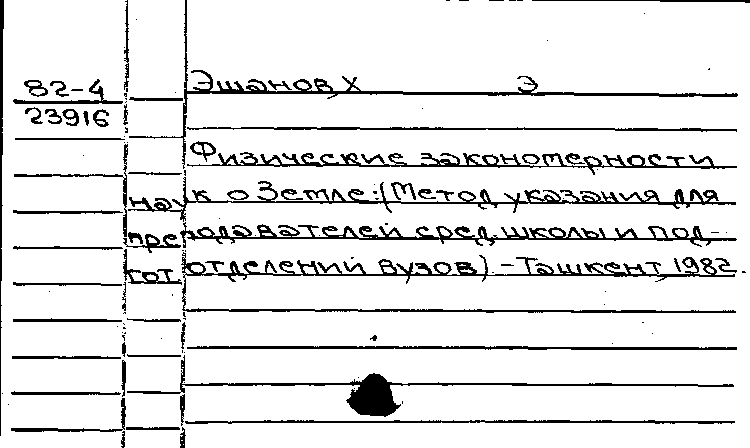 82-4 Эшанов, Х Э
23916
Физические закономерности
наук о Земле:(Метод указания для
преподавателей сред. школы и под-
гот. отделений вузов) - Ташкент, 1982.